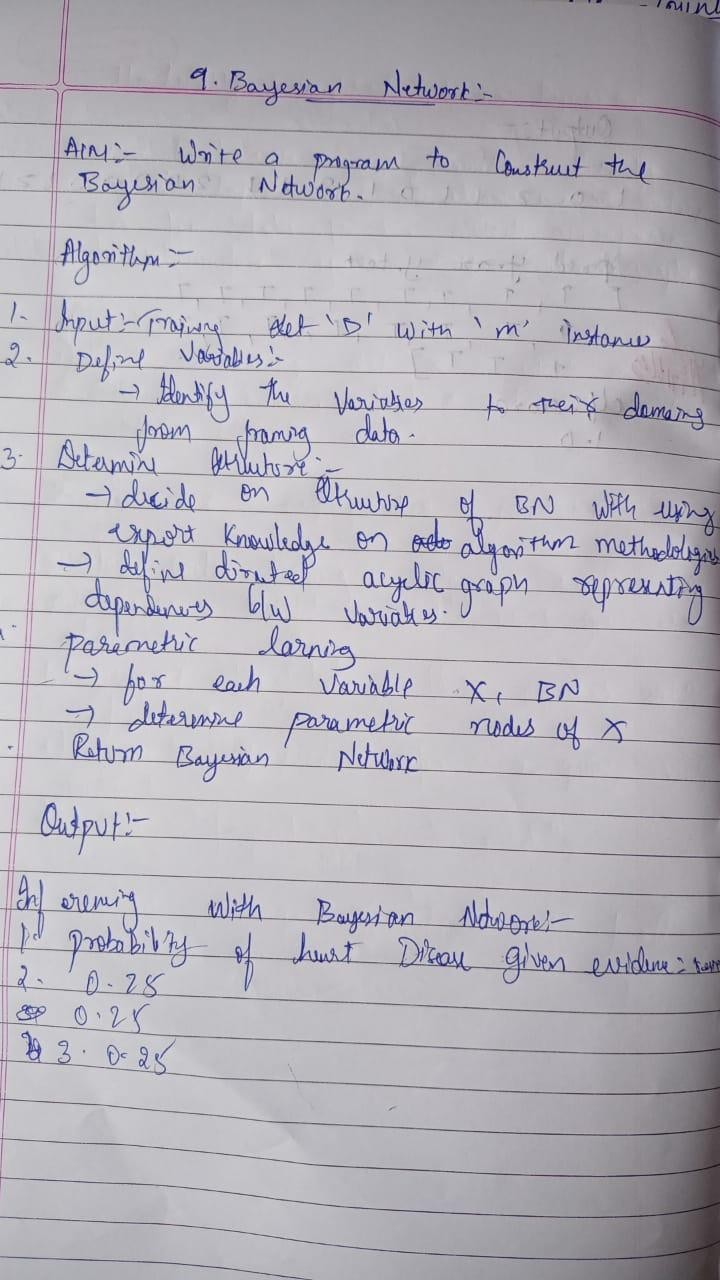 9. Bayesian Network:-
AIM:- Write a program to Construct the
Bayesian Network.
Algorithm:-
1. Input:- Training set 'D' with 'm' instance
2. Define Variables:-
→ Identify the Variables to their domains
from data.
3. Determine
→ decide on of BN with using
expert Knowledge on algorithm methodologies
→ define directed acyclic graph representing
dependences b/w Variables.
parametric larning
→ for each Variable X, BN
→ determine parametric nodes of X
Return Bayesian Network
Output:-
Inferencing with Bayesian Network:-
1. probability of heart Disease given evidence=
2. 0.25
0.25
3. 0.25